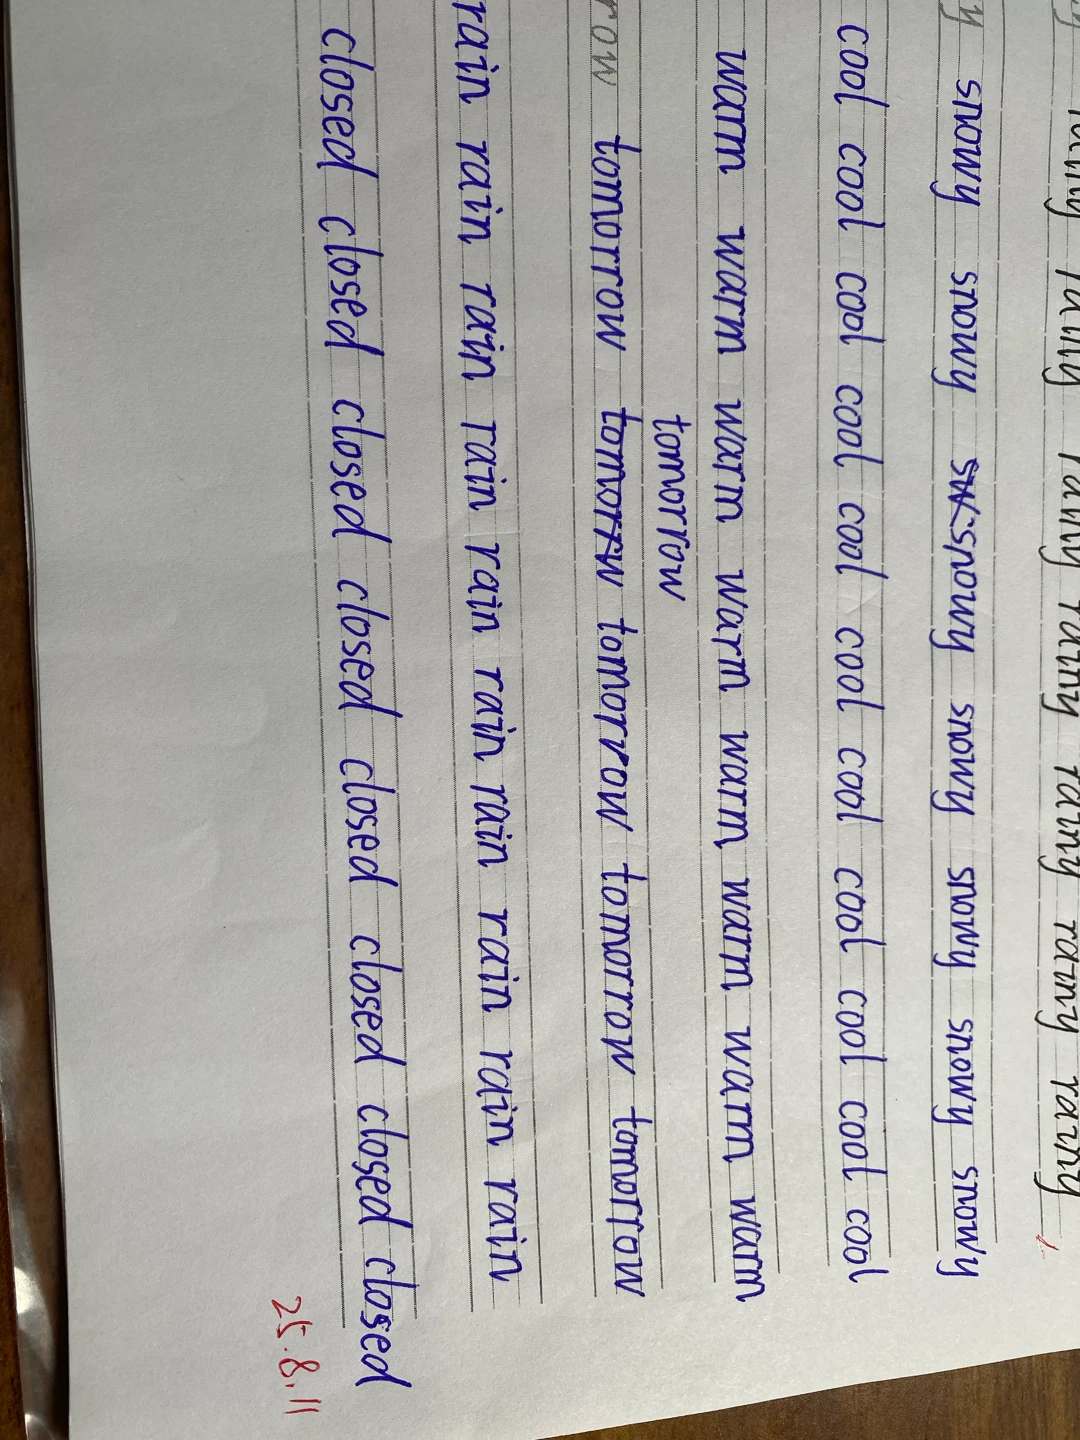 rainy rainy rainy rainy rainy rainy rainy
y snowy snowy snowy snowy snowy snowy snowy
cool cool cool cool cool cool cool cool cool cool cool
warm warm warm warm warm warm warm warm
tomorrow
row tomorrow tomorrw tomorrow tomorrow tomorrow
rain rain rain rain rain rain rain rain rain rain
closed closed closed closed closed closed closed closed
25.8.11